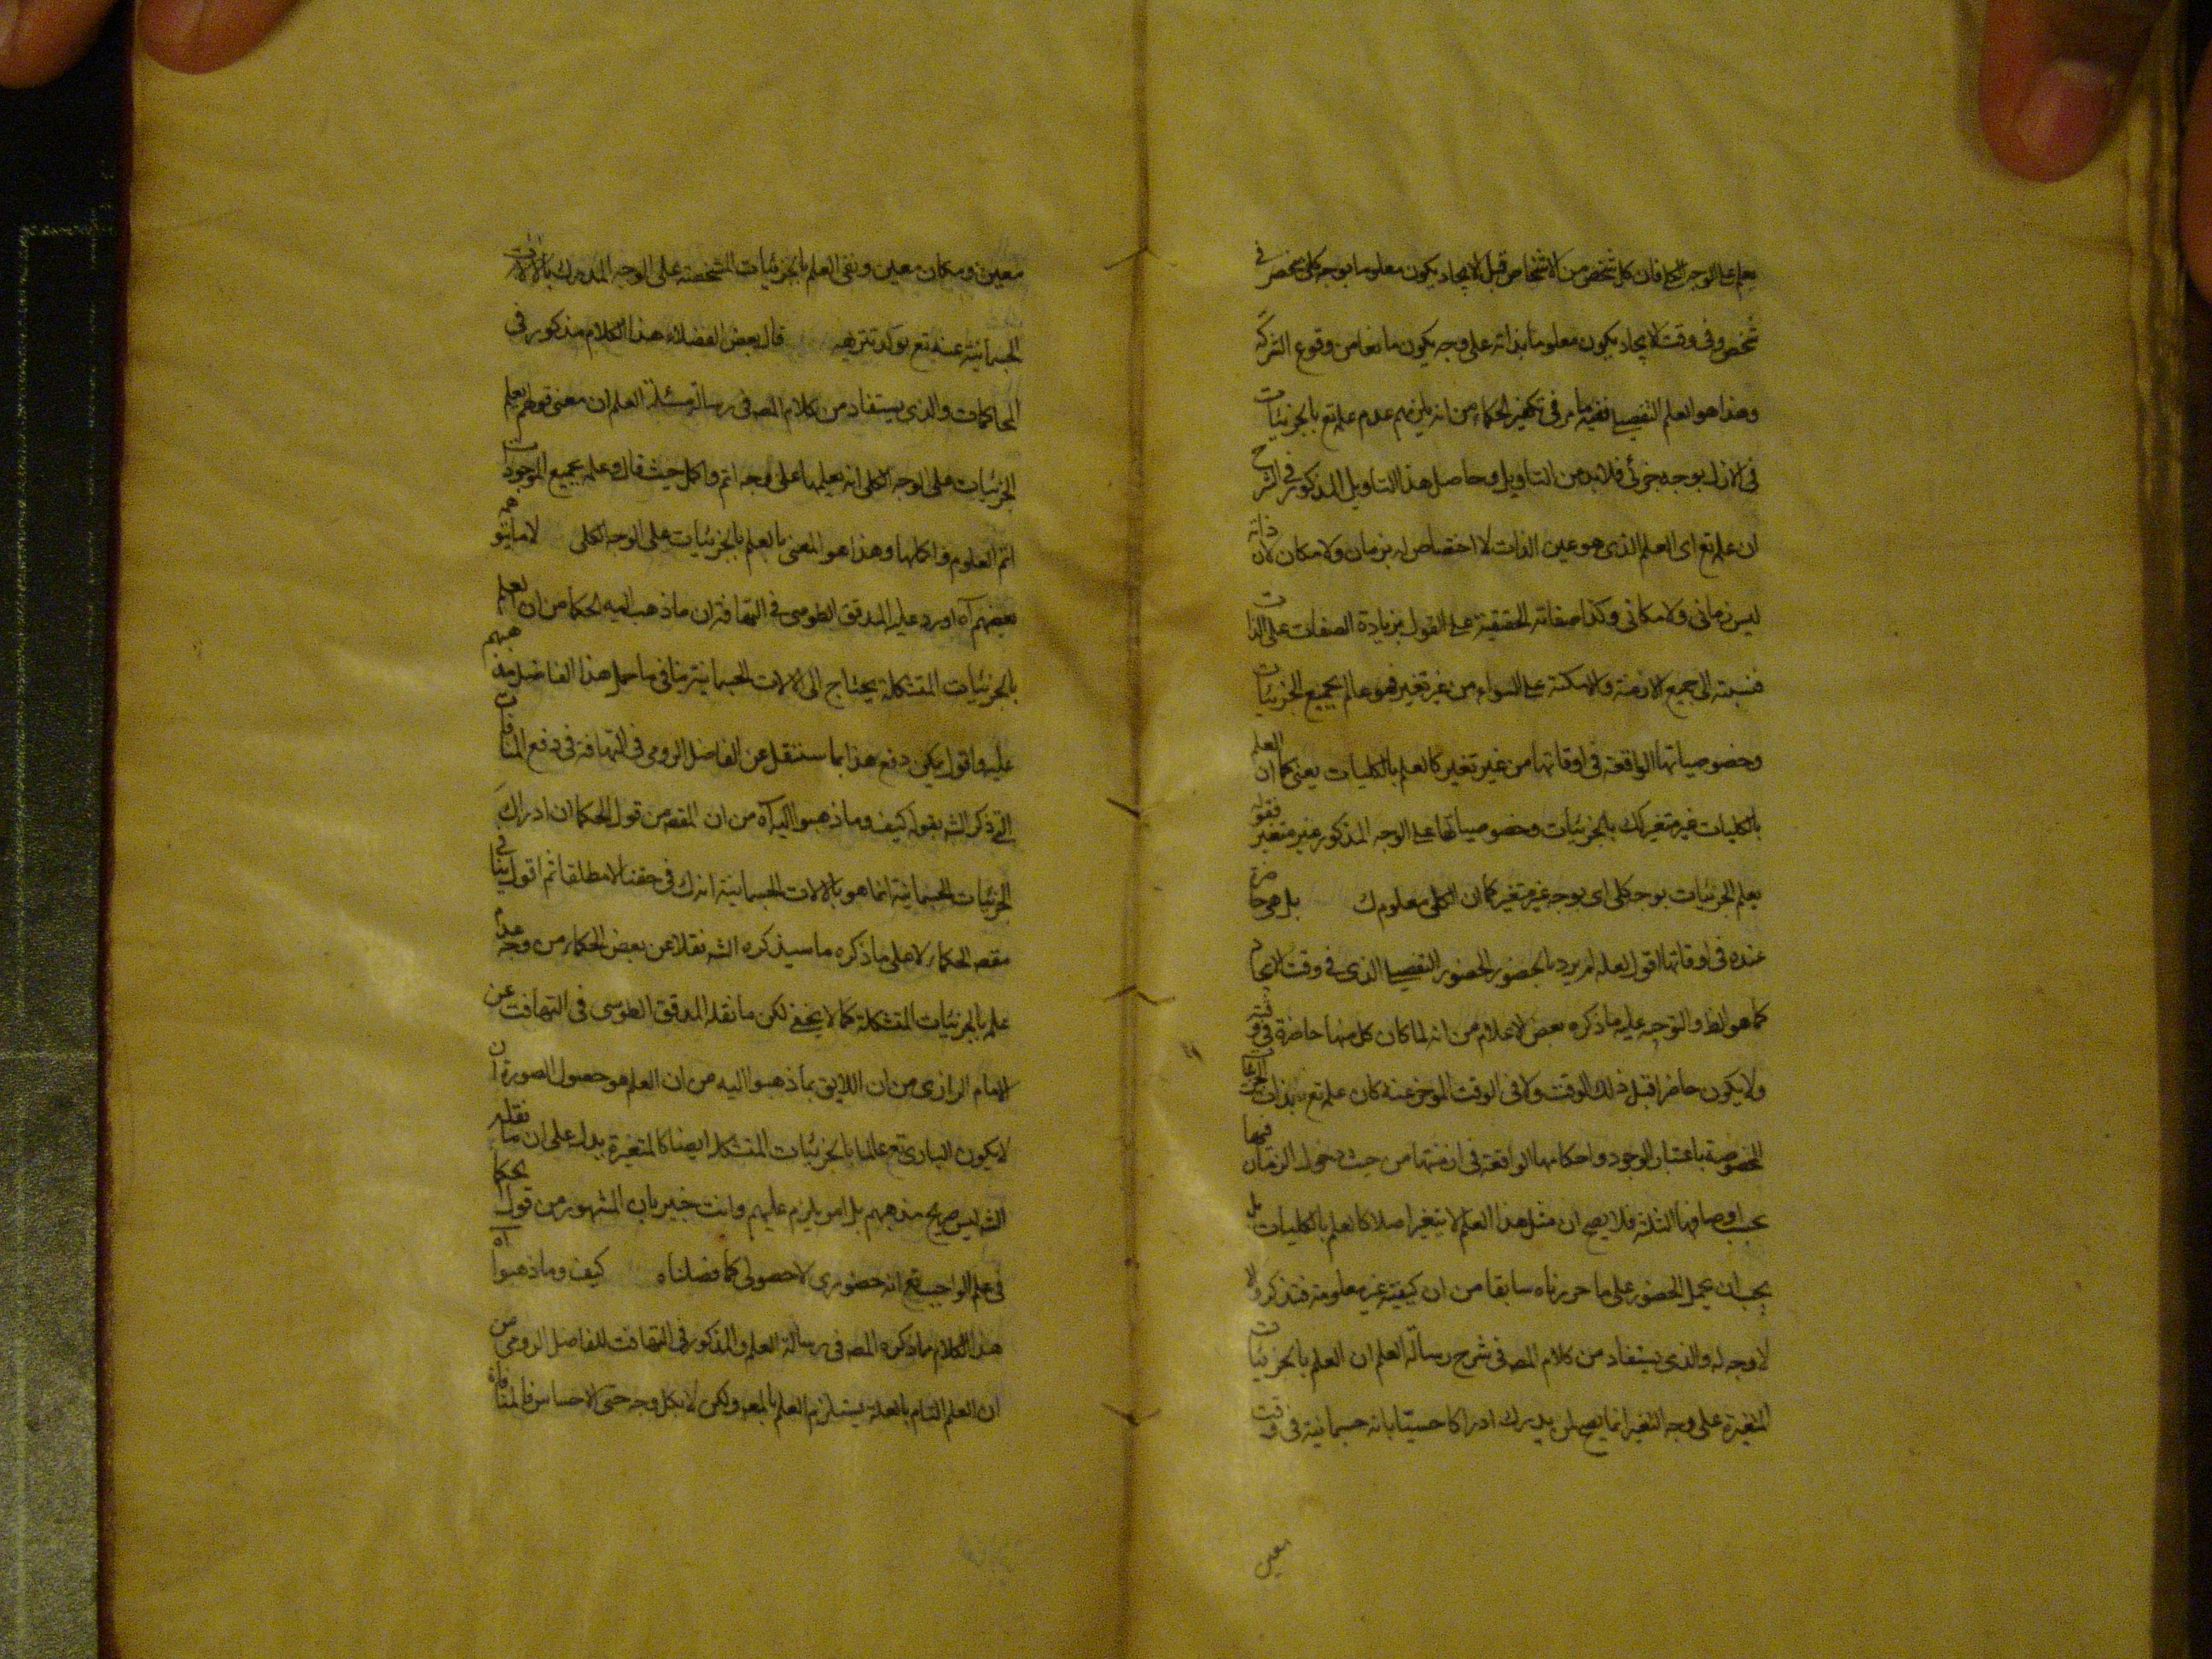 يعلم على الوجه الكلى فان كل شخص من الاشخاص قبل الايجاد يكون معلوما بوجه كلى منحصر فى
شخص وفى وقت الايجاد يكون معلوما بذاته على وجه يكون مانعا من وقوع الشركة
وهذا هو العلم التفصيلى ففيه ما مر فى تكفير الحكماء من انه يلزم عدم علمه تع بالجزئيات
فى الازل بوجه جزئى فلابد من التاويل وحاصل هذا التاويل المذكور فى الشرح
ان علمه تع اى العلم الذى هو عين الذات لا اختصاص له بزمان ولا مكان لان ذاته
ليس زمانى ولا مكانى وكذا صفاته الحقيقية على القول بزيادة الصفات على الذات
فنسبته الى جميع الازمنة والامكنة على السواء من غير تغير فهو عالم بجميع الجزئيات
وخصوصياتها الواقعة فى اوقاتها من غير تغير كالعلم بالكليات يعنى كما ان العلم
بالكليات غير متغير كك بالجزئيات وخصوصياتها على الوجه المذكور غير متغير فقوله
يعلم الجزئيات بوجه كلى اى بوجه غير متغير كما ان الكلى معلوم ك بل هى حاضرة
عنده فى اوقاتها اقول لعله لم يرد بالحضور الحضور التفصيلى الذى فى وقت الايجاد
كما هو الظ والتوجه عليه ما ذكره بعض الاعلام من انه لما كان كل منها حاضرة فى وقته
ولا يكون حاضرا قبل ذلك الوقت ولا فى الوقت الموخر عنه كان علمه تع بذات
المخصوصة باعتبار الوجود واحكامها الواقعة فى ازمنتها من حيث دخول الزمان فيها
بحسب اوصافها الثلثة فلا يصح ان مثل هذا العلم لا يتغير اصلا كالعلم بالكليات بل
يجب ان يحمل الحضور على ما حررناه سابقا من ان كيفيته غير معلومة فتذكر ولا
لا وجه له والذى يستفاد من كلام المصه فى شرح رسالة العلم ان العلم بالجزئيات
المتغيرة على وجه التغير انما يصح لمن يدرك ادراكا حسيا بانه جسمانية فى وقت
معين
معين ومكان معين ونفى العلم بالجزئيات الشخصية على الوجه المدرك بالالات
الجسمانية عنه تع يوكد تنزيهه قال بعض الفضلاء هذا الكلام مذكور فى
المحاكمات والذى يستفاد من كلام المصه فى رسالة مسئلة العلم ان معنى قولهم يعلم
الجزئيات على الوجه الكلى انه يعلمها على وجه اتم واكمل حيث قال وعلمه بجميع الموجودات
اتم العلوم واكملها وهذا هو المعنى بالعلم بالجزئيات على الوجه الكلى لا ما يتوهم
بعضهم آه اورد عليه المدقق الطوسى فى التهافة ان ما ذهب اليه الحكما من ان العلم
بالجزئيات المتشكلة يحتاج الى الالات الجسمانية ينافى ما حمل هذا الفاضل مذهبهم
عليه واقول يمكن دفع هذا بما سننقل عن الفاضل الرومى فى التهافة فى دفع المنافاة
التى ذكر الشه بقوله كيف وما ذهبوا اليه آه من ان المقصه من قول الحكما ان ادراك
الجزئيات الجسمانية انما هو بالالات الجسمانية ان ذلك فى حقنا لا مطلقا ثم اقول ينافى
مقصه الحكماء لا على ما ذكره ما سيذكره الشه نقلا عن بعض الحكماء من وجه عدم
علمه بالجزئيات المتشكلة كما لا يخفى لكن ما نقله المدقق الطوسى فى التهافت عن
الامام الرازى من ان اللايق بما ذهبوا اليه من ان العلم هو حصول الصورة ان
لا يكون البارى تع عالما بالجزئيات المتشكلة ايضا كالمتغيرة يدل على ان ما نقله
الشه ليس صريح مذهبهم بل امر يلزم عليهم وانت خبير بان المشهور من قول الحكما
فى علم الواجب تع انه حضورى لا حصولى كما فصلناه كيف وما ذهبوا آه
هذا الكلام ما ذكره المصه فى رسالة العلم والمذكور فى التهافت للفاضل الرومى من
ان العلم التام بالعلة يستلزم العلم بالمعه ولكن لا بكل وجه حتى الاحساس فالمنافاة